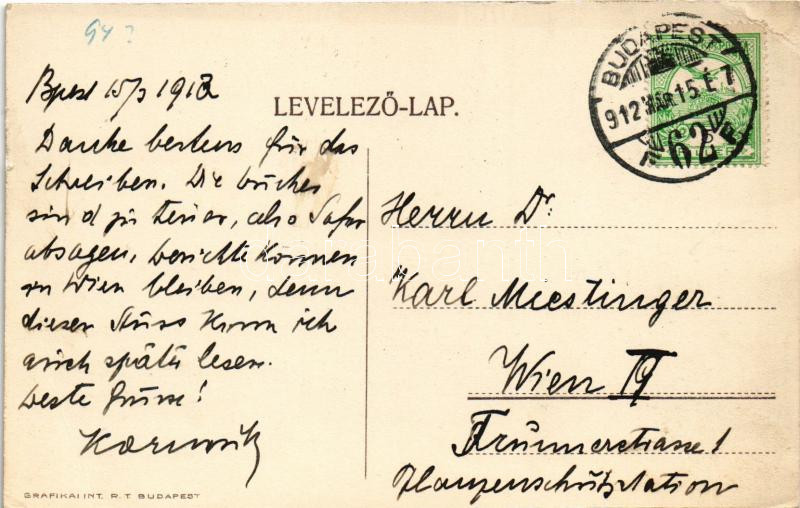 94?
Bpest 15/3 1912
LEVELEZŐ-LAP.
BUDAPEST
912 MÁR 15 E 7
62
Danke bestens für das
Schreiben. Die bücher
sind zu teuer, also Sofor
absagen, berichte Kommen
in Wien bleiben, denn
diesen Stuss kann ich
auch später lesen.
beste Grüsse!
Herrn Dr.
Karl Miestinger
Wien II
Trunnerstrasse 1
Pflanzenschutzstation
GRAFIKAI INT. R. T. BUDAPEST
darabanth